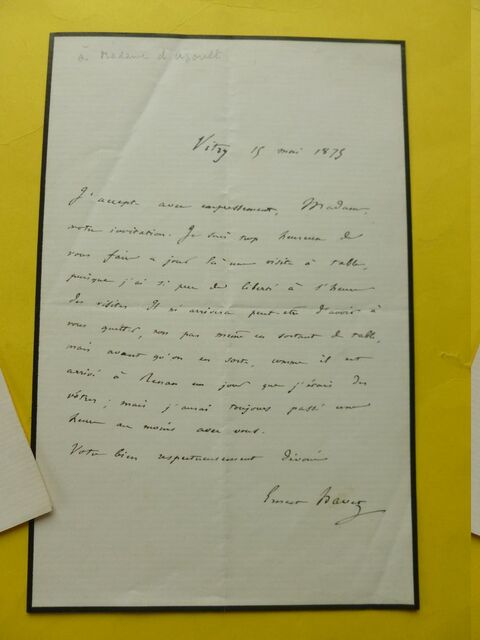 à Madame
Vitry 15 mai 1875
J'accepte avec empressement, Madame,
votre invitation. Je suis trop heureux de
vous faire ce jour là une visite à table,
puisque j'ai si peu de liberté à l'heure
des visites. Il m'arrivera peut-être d'avoir à
vous quitter, non pas même en sortant de table,
mais avant qu'on en sorte, comme il est
arrivé à Renan un jour que j'étais des
vôtres ; mais j'aurai toujours passé une
heure au moins avec vous.
Votre bien respectueusement dévoué
Ernest Havet